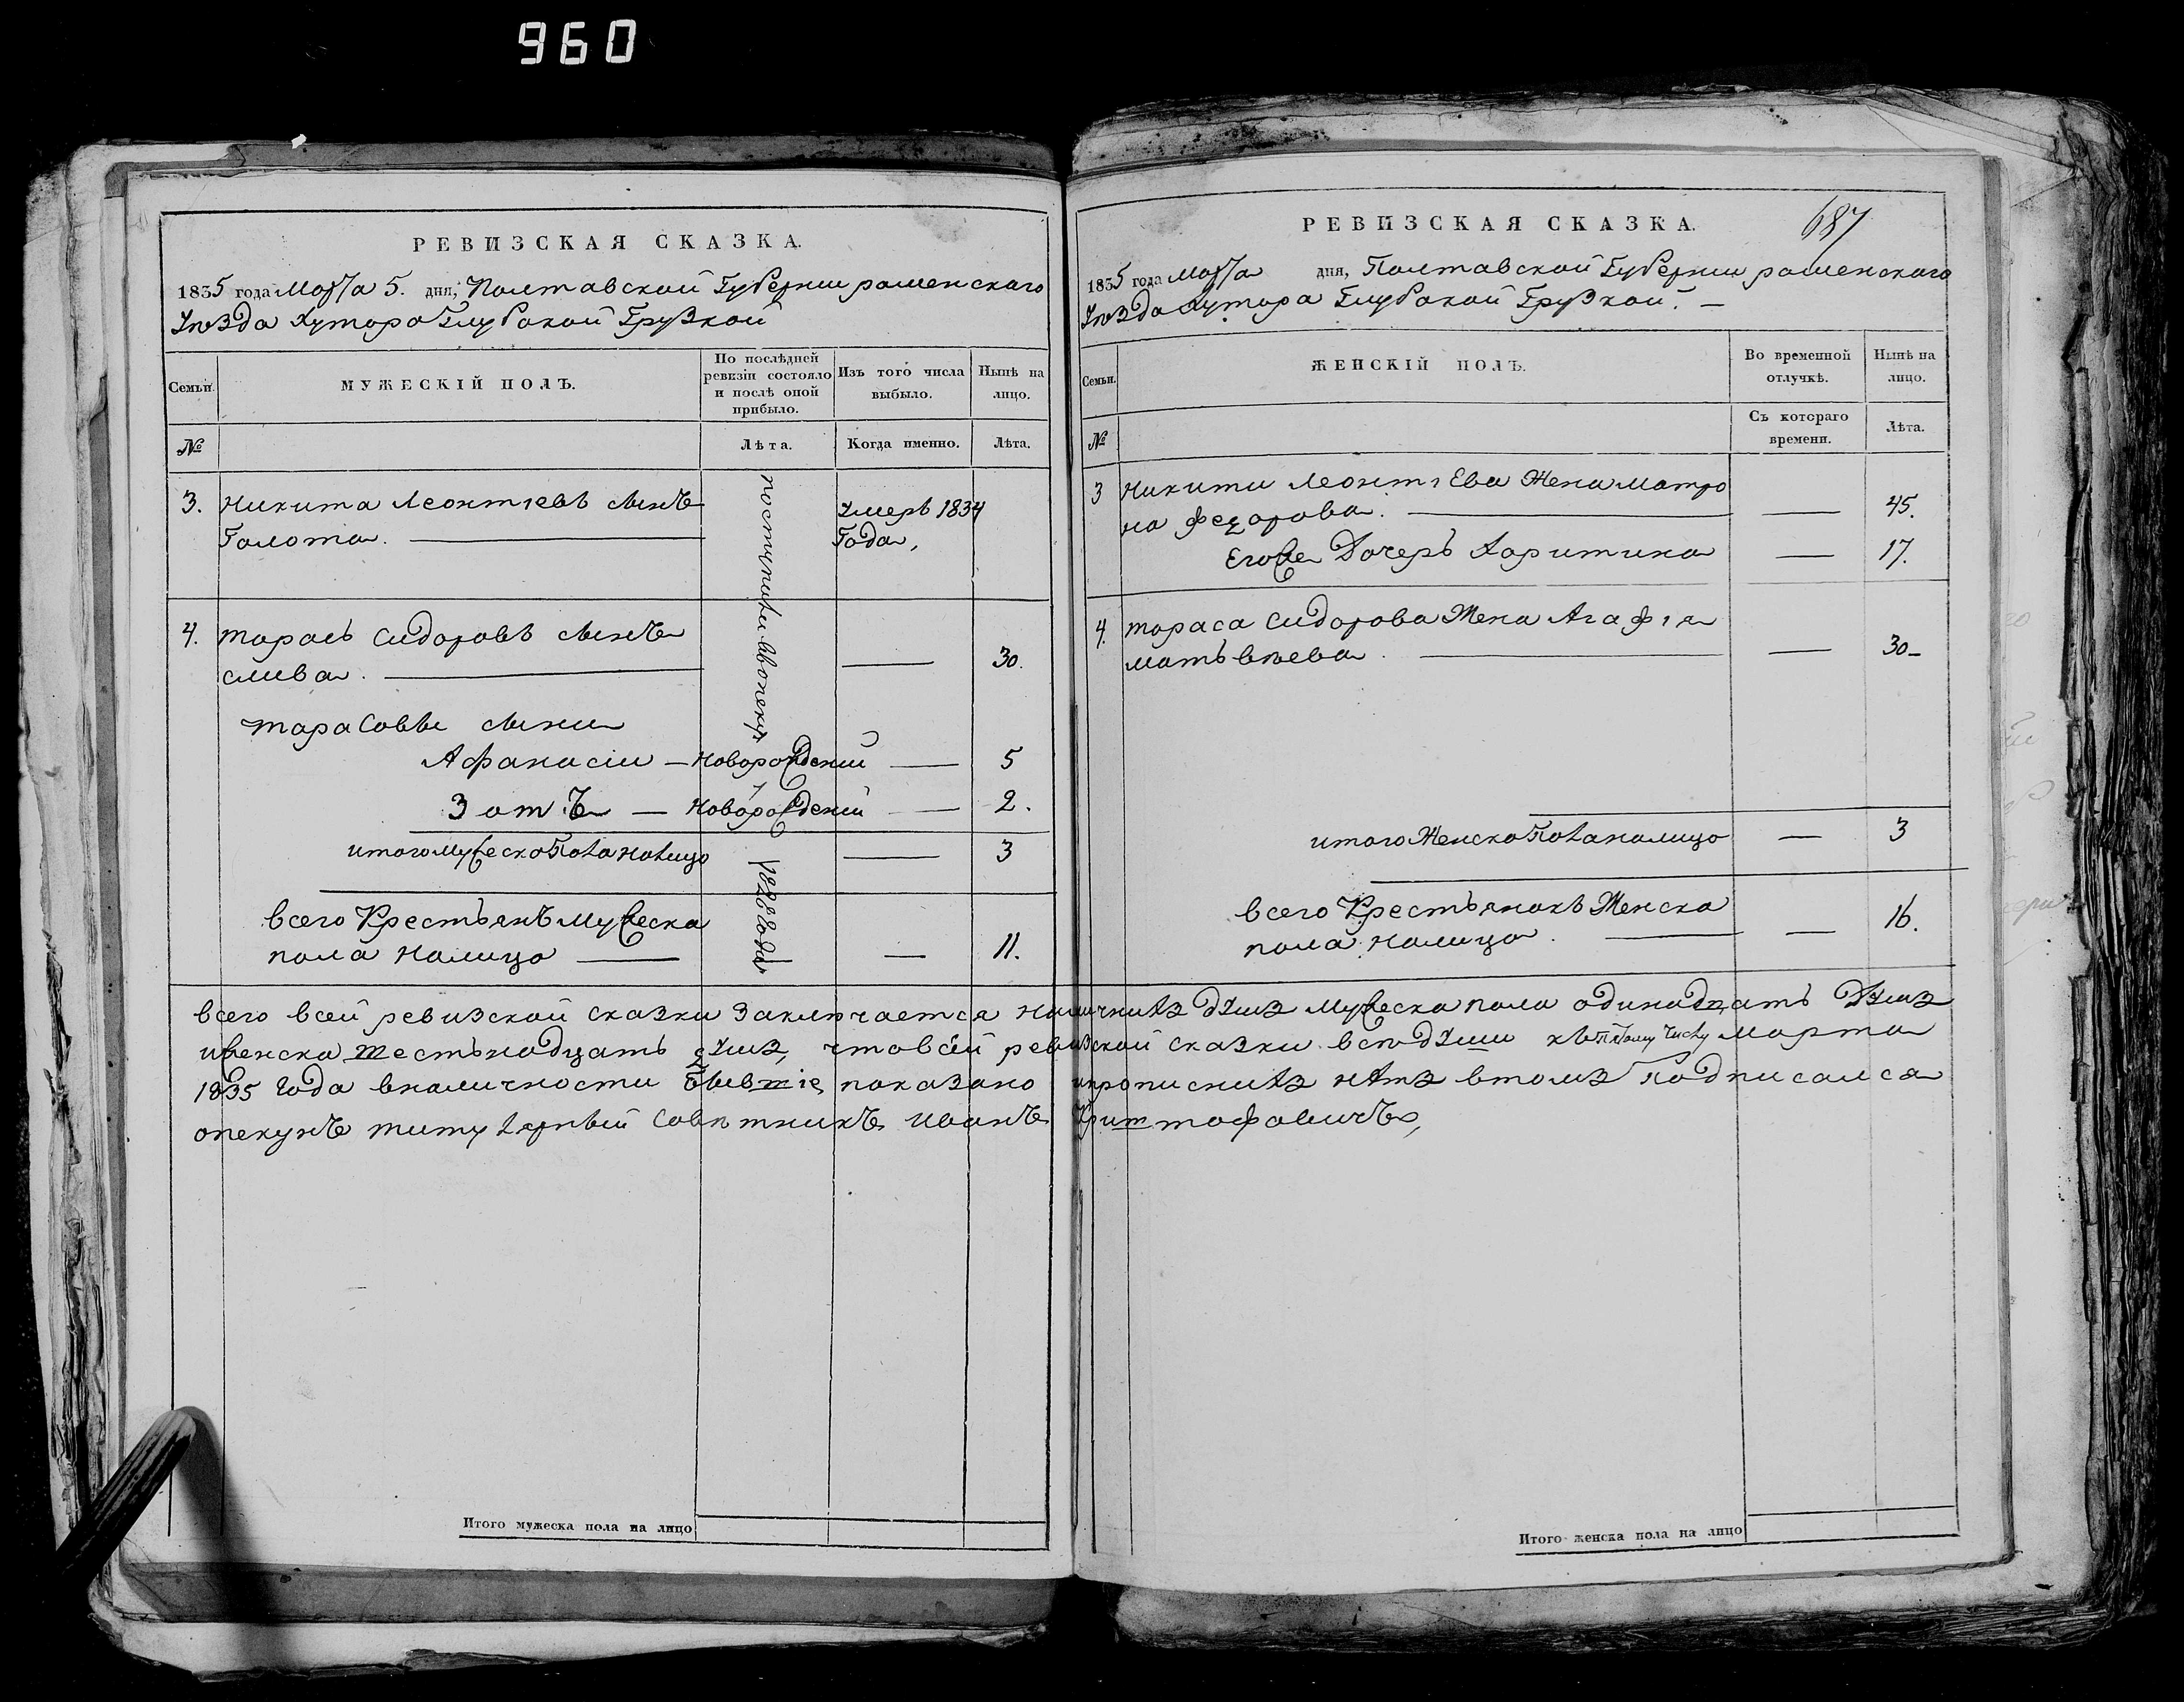 960
РЕВИЗСКАЯ СКАЗКА.
1835 года Марта 5. дня, Полтавской Губернии роменского
Уѣзда Хутора Глубокой Грузкой
Семьи. МУЖЕСКІЙ ПОЛЪ. По послѣдней ревизіи состояло и послѣ оной прибыло. Изъ того числа выбыло. Нынѣ на лицо.
№ Лѣта. Когда именно. Лѣта.
3. Никита Леонтіевъ сынъ умеръ 1834
Голота. Года,
4. Тарасъ Сидоровъ сынъ
слива. — 30.
тарасовы сыни
Афанасіи — новорождений — 5
Зотъ — новорождений — 2.
итого мужеска пола налицо — 3
всего Крестьянъ мужеска
пола налицо — — 11.
1828 года
РЕВИЗСКАЯ СКАЗКА. 687
1835 года Марта дня, Полтавской Губернии роменского
Уѣзда Хутора Глубокой Грузкой. —
Семьи. ЖЕНСКІЙ ПОЛЪ. Во временной отлучкѣ. Нынѣ на лицо.
№ Съ котораго времени. Лѣта.
3 Никити Леонтіева Жена матро
на федорова. — — 45.
Егоже Дочерь Харитина — 17.
4. тараса Сидорова Жена Агафія
матьвѣева. — — 30–
итого Женска пола налицо — 3
всего Крестьянокъ Женска
пола налицо. — — 16.
всего всей ревизской сказки заключается наличнихъ душъ мужеска пола одинадцать душъ
иженска шестьнадцать душъ, что всей ревизской сказки всѣ души къ пятому числу марта
1835 года вналичности бывшіе показано ипрописнихъ нѣтъ втомъ подписался
опекунъ титулярный совѣтникъ Иванъ Криштофовичъ,
Итого мужеска пола на лицо
Итого женска пола на лицо